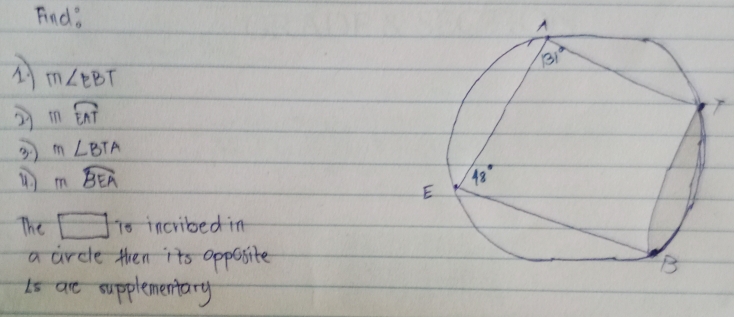 Find:
1.) m∠EBT
2.) m EAT
3.) m ∠BTA
4.) m BEA
The is incribed in
a circle then its opposite
∠s are supplementary
A
131°
T
48°
E
B